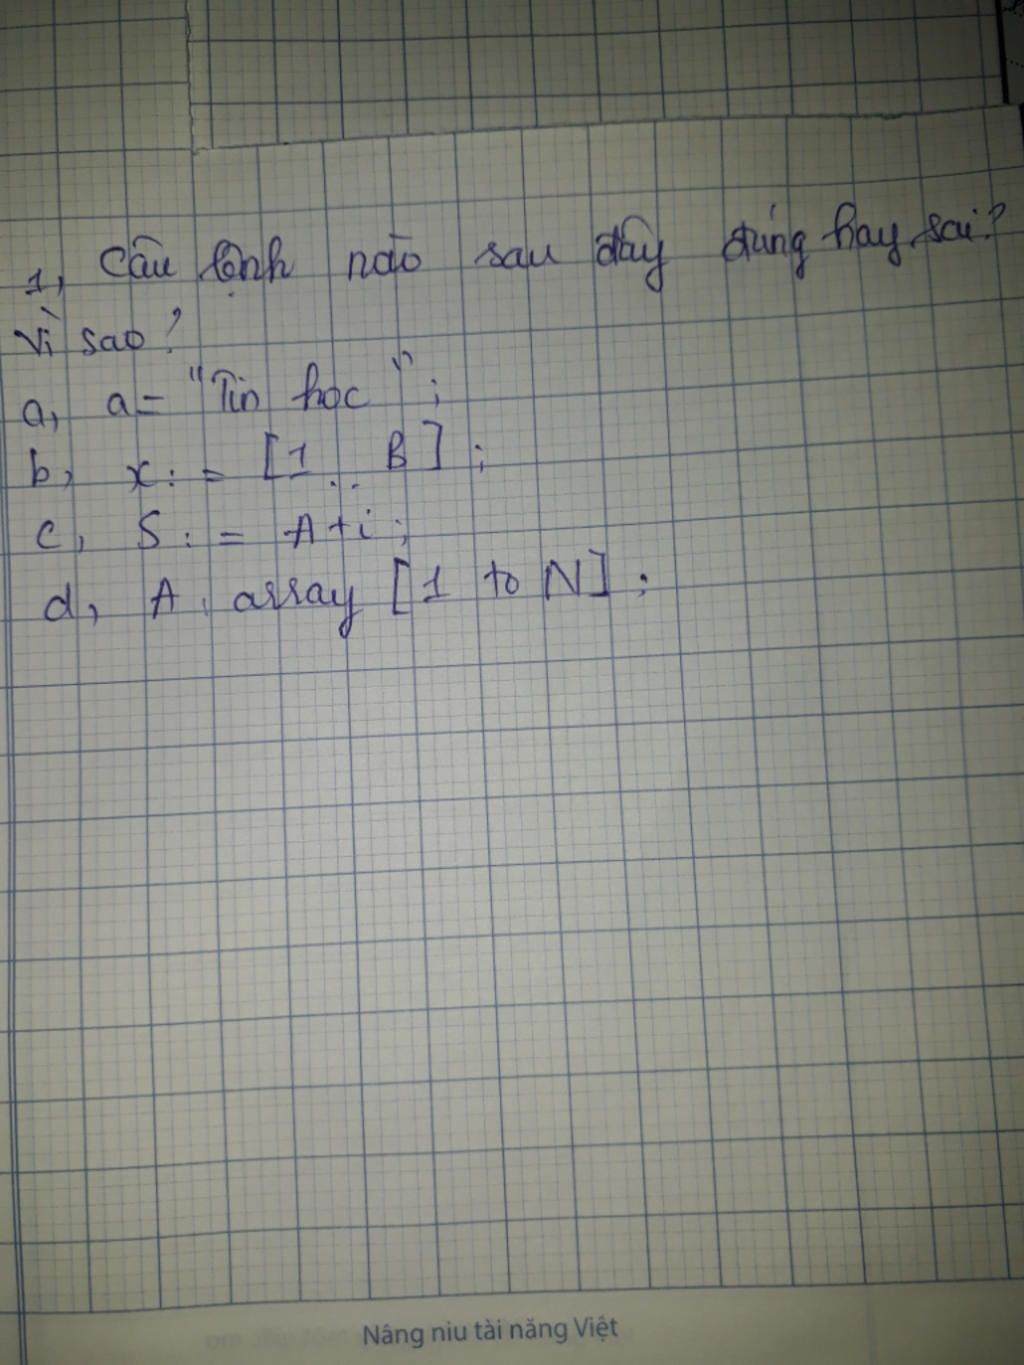 1, Câu lệnh nào sau đây đúng hay sai?
Vì sao?
a, a = "Tin học";
b, x := [1..B];
c, S := A+i;
d, A, array [1 to N];
Nâng niu tài năng Việt